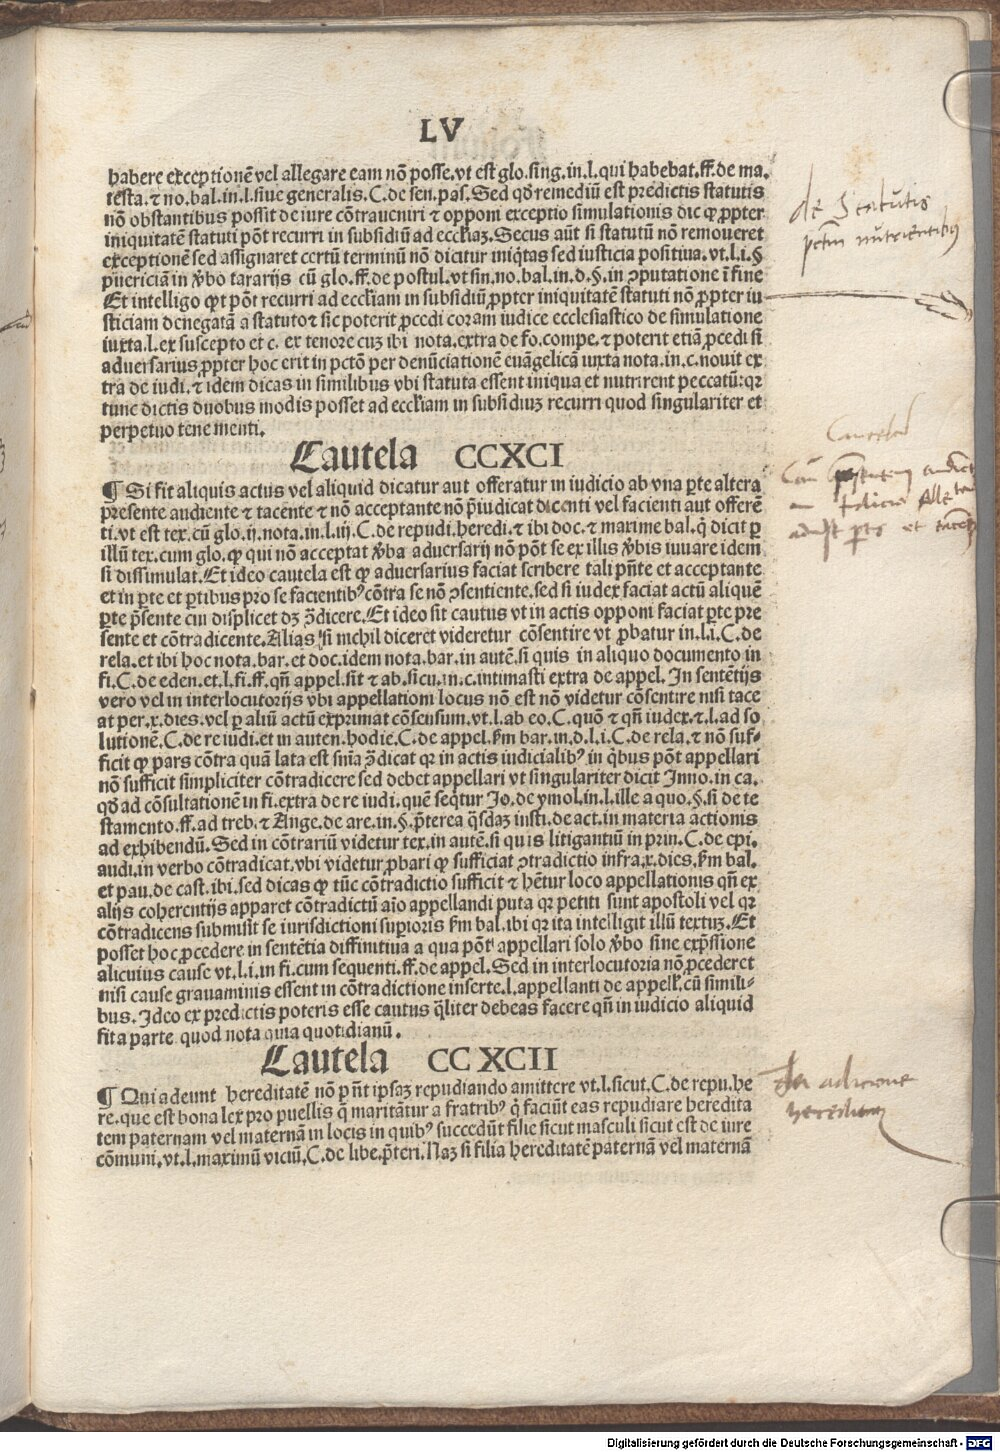 LV
habere exceptionē vel allegare eam nō posse. vt est glo. sing. in. l. qui habebat. ff. de ma.
testa. ⁊ no. bal. in. l. siue generalis. C. de sen. pas. Sed qđ remediū est predictis statutis
nō obstantibus possit de iure cōtraueniri ⁊ opponi exceptio simulationis dic ꝙ ꝓpter
iniquitatē statuti pōt recurri in subsidiū ad eccliaꝫ. Secus aūt si statutū nō remoueret
exceptionē sed assignaret certū terminū nō dicitur iniqͥtas sed iusticia positiua. vt. l. i. §
nūericiā in ꝟbo tararijs cū glo. ff. de postul. vt sin. no. bal. in. d. §. in ꝯputatione ī fine
Et intelligo ꝙ pōt recurri ad eccliam in subsidiū ꝓpter iniquitatē statuti nō ꝓpter iu
sticiam denegatā a statuto ⁊ sic poterit ꝓcedi coram iudice ecclesiastico de simulatione
iuxta. l. ex suscepto et c. ex tenore cuꝫ ibi nota. extra de fo. compe. ⁊ poterit etiā ꝓcedi si
aduersarius ꝓpter hoc erit in pctō per denūciationē euāgelicā iuxta nota. in. c. nouit ex
tra de iudi. ⁊ idem dicas in similibus vbi statuta essent iniqua et nutrirent peccatū: qꝛ
tunc dictis duobus modis posset ad eccliam in subsidiuꝫ recurri quod singulariter et
perpetuo tene menti.
Cautela CCXCI
¶ Si fit aliquis actus vel aliquid dicatur aut offeratur in iudicio ab vna ꝑte altera
presente audiente ⁊ tacente ⁊ nō acceptante nō p̄iudicat dicenti vel facienti aut offerē
ti. vt est tex. cū glo. ij. nota. in. l. iij. C. de repudi. heredi. ⁊ ibi doc. ⁊ maxime bal. q̇ dicit ꝑ
illū tex. cum glo. ꝙ qui nō acceptat ꝟba aduersarij nō pōt se ex illis ꝟbis iuuare idem
si dissimulat. Et ideo cautela est ꝙ aduersarius faciat scribere tali p̄nte et acceptante
et in ꝑte et ꝑtibus pro se facientibꝰ cōtra se nō ꝯsentiente. sed si iudex faciat actū aliquē
ꝑte p̄sente cui displicet dꝫ ꝯ̄dicere. Et ideo sit cautus vt in actis opponi faciat ꝑte pre
sente et cōtradicente. Alias si nichil diceret videretur cōsentire vt ꝓbatur in. l. i. C. de
rela. et ibi hoc nota. bar. et doc. idem nota. bar. in autē. si quis in aliquo documento in
fi. C. de eden. et. l. fi. ff. qn̄ appel. sit ⁊ ab. sicu. in. c. intimasti extra de appel. In sentētijs
vero vel in interlocutorijs vbi appellationi locus nō est nō videtur cōsentire nisi tace
at per. x. dies. vel ꝑ aliū actū exprimat cōsensum. vt. l. ab eo. C. quō ⁊ qn̄ iudex. ⁊. l. ad so
lutionē. C. de re iudi. et in auten. hodie. C. de appel. ẜm bar. in. d. l. i. C. de rela. ⁊ nō suf⸗
ficit ꝙ pars cōtra quā lata est sn̄ia ꝯ̄dicat qꝛ in actis iudicialibꝰ in qͥbus pōt appellari
nō sufficit simpliciter cōtradicere sed debet appellari vt singulariter dicit Inno. in ca.
qđ ad cōsultationē in fi. extra de re iudi. quē seqͥtur Jo. de ymol. in. l. ille a quo. §. si de te
stamento. ff. ad treb. ⁊ Ange. de are. in. §. p̄terea qͥsdaꝫ insti. de act. in materia actionis
ad exhibendū. Sed in contrariū videtur tex. in autē. si quis litigantiū in prin. C. de epi.
audi. in verbo cōtradicat. vbi videtur ꝓbari ꝙ sufficiat ꝯtradictio infra. x. dies. ẜm bal.
et pau. de cast. ibi. sed dicas ꝙ tūc cōtradictio sufficit ⁊ hētur loco appellationis qn̄ ex
alijs coherentijs apparet cōtradictū aīo appellandi puta qꝛ petiti sunt apostoli vel qꝛ
cōtradicens submisit se iurisdictioni suꝑioris ẜm bal. ibi qꝛ ita intelligit illū textuꝫ. Et
posset hoc ꝓcedere in sentētia diffinitiua a qua pōt appellari solo ꝟbo sine exp̄ssione
alicuius cause vt. l. i. in fi. cum sequenti. ff. de appel. Sed in interlocutoria nō ꝓcederet
nisi cause grauaminis essent in cōtradictione inserte. l. appellanti de appell. cū simili⸗
bus. Ideo ex predictis poteris esse cautus qͣliter debeas facere qn̄ in iudicio aliquid
fit a parte quod nota quia quotidianū.
Cautela CCXCII
¶ Qui adeunt hereditatē nō p̄nt ipsaꝫ repudiando amittere vt. l. sicut. C. de repu. he
re. que est bona lex pro puellis q̄ maritātur a fratribꝰ q̇ faciūt eas repudiare heredita
tem paternam vel maternā in locis in quibꝰ succedūt filie sicut masculi sicut est de iure
cōmuni. vt. l. maximū viciū. C. de libe. p̄teri. Naꝫ si filia hereditatē paternā vel maternā
de Statutis
pctm nutrientibus
De adicione
hereditatis
Digitalisierung gefördert durch die Deutsche Forschungsgemeinschaft - DFG